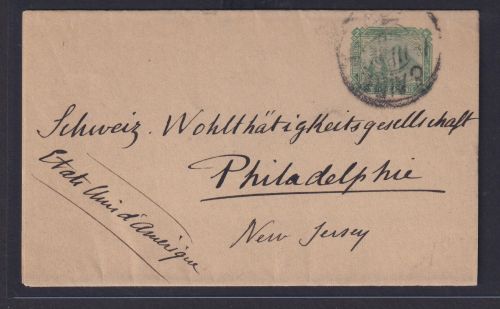 Schweiz. Wohlthätigkeitsgesellschaft
Philadelphie
New Jersey
Etats Unis d'Amérique